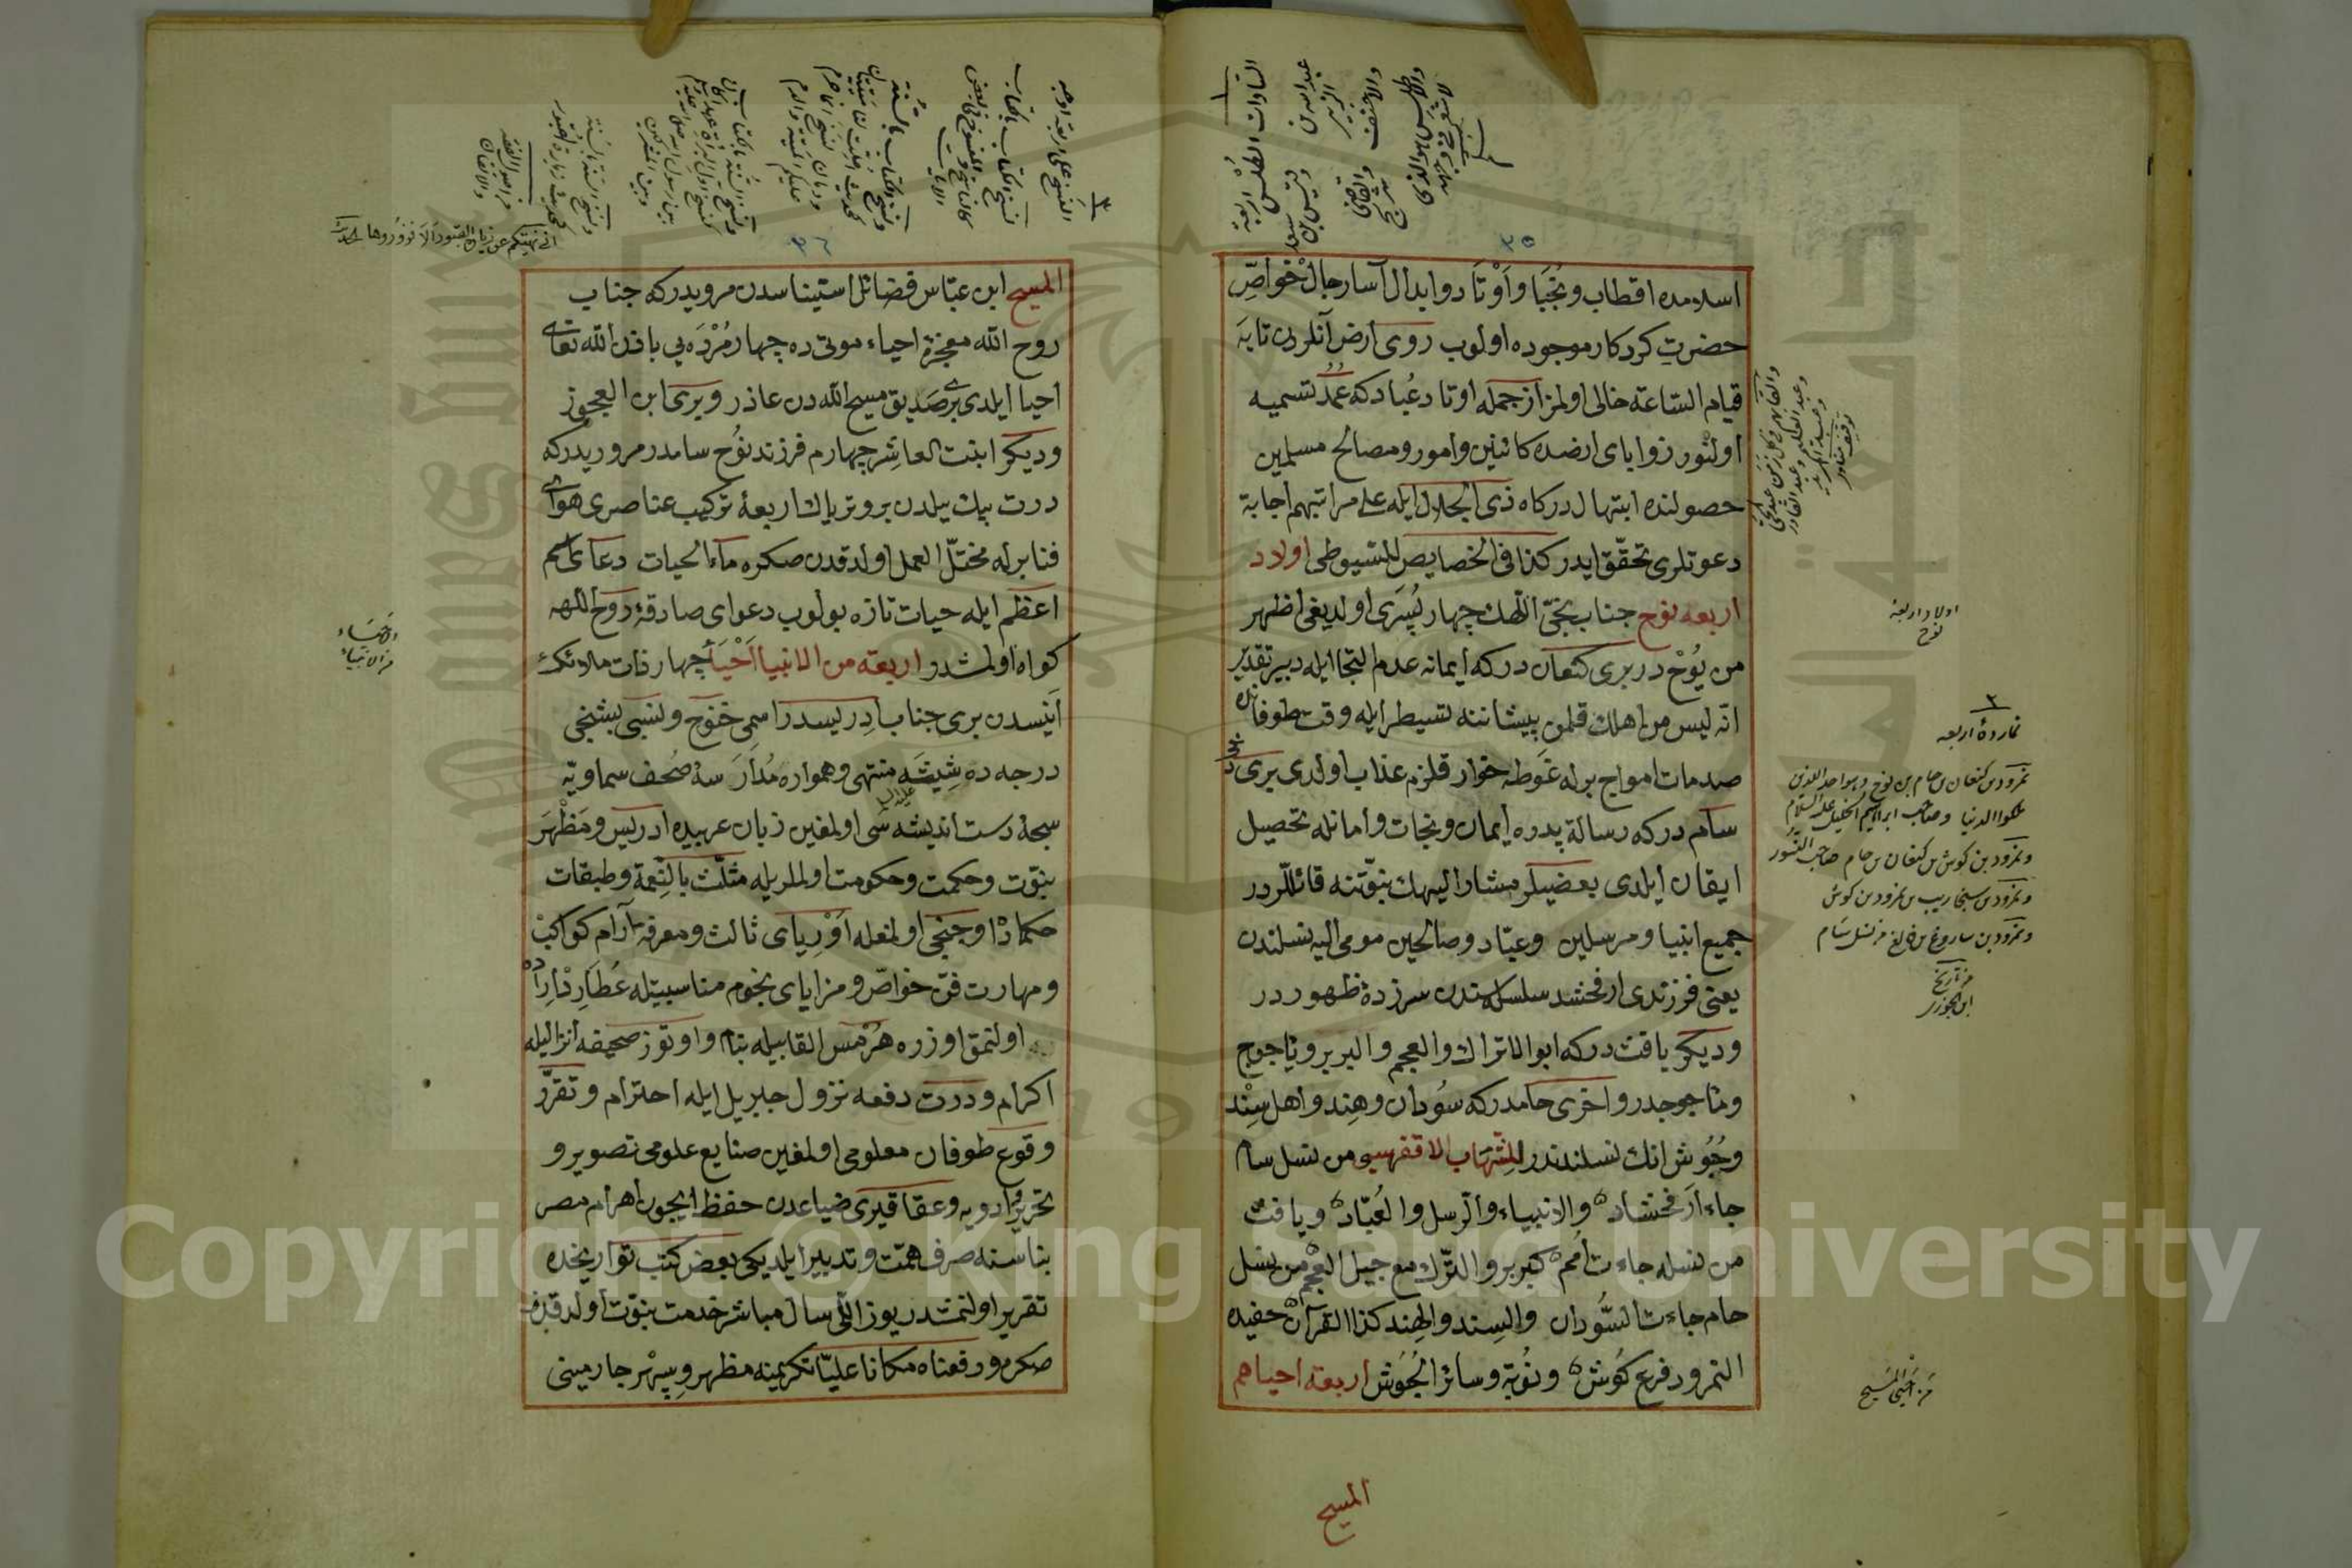 ٣٥
اسلامده اقطاب ونجبا واوتاد وابدال آسا رجال خواص
حضرت كردكار موجوده اولوب روى ارض آنلردن تا به
قيام الساعة خالى اولمز از جمله اوتاد عباد كه عمد تسميه
اولنور زواياى ارضده كائنين وامور ومصالح مسلمين
حصولنده ابتهال دركاه ذى الجلال ايله على مراتبهم اجابة
دعوتلرى تحقق ايدر كذا فى الخصايص للسيوطى اولاد
اربعه نوح جناب نجى اللهك چهار پسرى اولديغى اظهر
من يوح در برى كنعان دركه ايمانه عدم التجا ايله دبير تقدير
انه ليس من اهلك قلمن پيشاننه تسيطر ايله وقت طوفانده
صدمات امواج برله غوطه خوار قلزم عذاب اولدى برى دخى
سام دركه رسالة پدره ايمان ونجات وامانله تحصيل
ايقان ايلدى بعضيلر مشار اليهك نبوتنه قائللردر
جميع انبيا ومرسلين وعباد وصالحين مومى اليه نسلندن
يعنى فرزندى ارفخشد سلسله سندن سرزدهٔ ظهوردر
وديكر يافث دركه ابو الاتراك والعجم والبربر وياجوج
وماجوجدر واخرى حامدركه سودان وهند واهل سند
وحبوش انك نسلندندر للشهاب الاقفهسى من نسل سام
جاء ارفخشاد والانبياء والرسل والعباد ويافث
من نسله جاءت امم كبربر والترك مع جيل العجم من نسل
حام جاءت السودان والسند والهند كذا القرآن حفيده
النمرود فرع كوش ونوبة وسائر الحبوش اربعة احياهم
المسيح
السادات الطلس اربعة
عبد الله بن الزبير
وقيس بن سعد
والاحنف
والقاضى شريح
والاطلس هو الذى
لا شعر فى وجهه
اولاد اربعهٔ
نوح
٢
نماردهٔ اربعه
نمرود بن كنعان بن حام بن نوح وهو احد الذين
ملكوا الدنيا وصاحب ابراهيم الخليل عليه السلام
ونمرود بن كوش بن كنعان بن حام صاحب النسور
ونمرود بن سنجاريب بن نمرود بن كوش
ونمرود بن ساروغ بن فالغ من نسل سام
من تاريخ
ابن الجوزى
من احيى المسيح
٣٦
المسيح ابن عباس فضائل استيناسدن مرويدركه جناب
روح الله معجزهٔ احياء موتى ده چهار مرده يى باذن الله تعالى
احيا ايلدى برى صديق مسيح الله دن عاذر وبرى ابن العجوز
وديكر ابنت العاشر چهارم فرزند نوح سامدر مرويدركه
درت بيك ييلدن برو ترياك اربعهٔ تركيب عناصرى هواى
فنا برله مختل العمل اولدقدن صكره ماء الحيات دعاى اسم
اعظم ايله حيات تازه بولوب دعواى صادقهٔ روح اللهه
كواه اولمشدر اربعة من الانبيا احيا چهار ذات ملائك
انيسدن برى جناب ادريسدر اسمى خنوخ ونسبى بشنجى
درجه ده شيثه منتهى وهمواره مدار سهٔ صحف سماويه
سبحهٔ دست انديشه سى اولمغين زبان عربيده ادريس ومظهر
نبوت وحكمت وحكومت اولملريله مثلث بالنعمة وطبقات
حكمادن اوچنجى اولمغله اورياى ثالث ومعرفة آرام كواكب
ومهارت فن خواص ومزاياى نجوم مناسبتيله عطارد ارا ده
اولنمق اوزره هرمس القابيله بنام واوتوز صحيفه انزاليله
اكرام ودرت دفعه نزول جبريل ايله احترام وتقرر
وقوع طوفان معلومى اولمغين صنايع علومى تصوير و
تحرير وادويه وعقاقيرى ضياعدن حفظ ايچون اهرام مصر
بناسنه صرف همت وتدبير ايلديكى بعض كتب تواريخده
تقرير اولنمشدر يوز اللى سال مباشر خدمت نبوت اولدقدن
صكره ورفعناه مكانا عليا تكريمنه مظهر وسپهر چارمينى
النسخ على اربعة اوجه
نسخ الكتاب بالكتاب
انى نهيتكم عن زيارة القبور الا فزوروها الحديث
الاحياء
من الانبياء